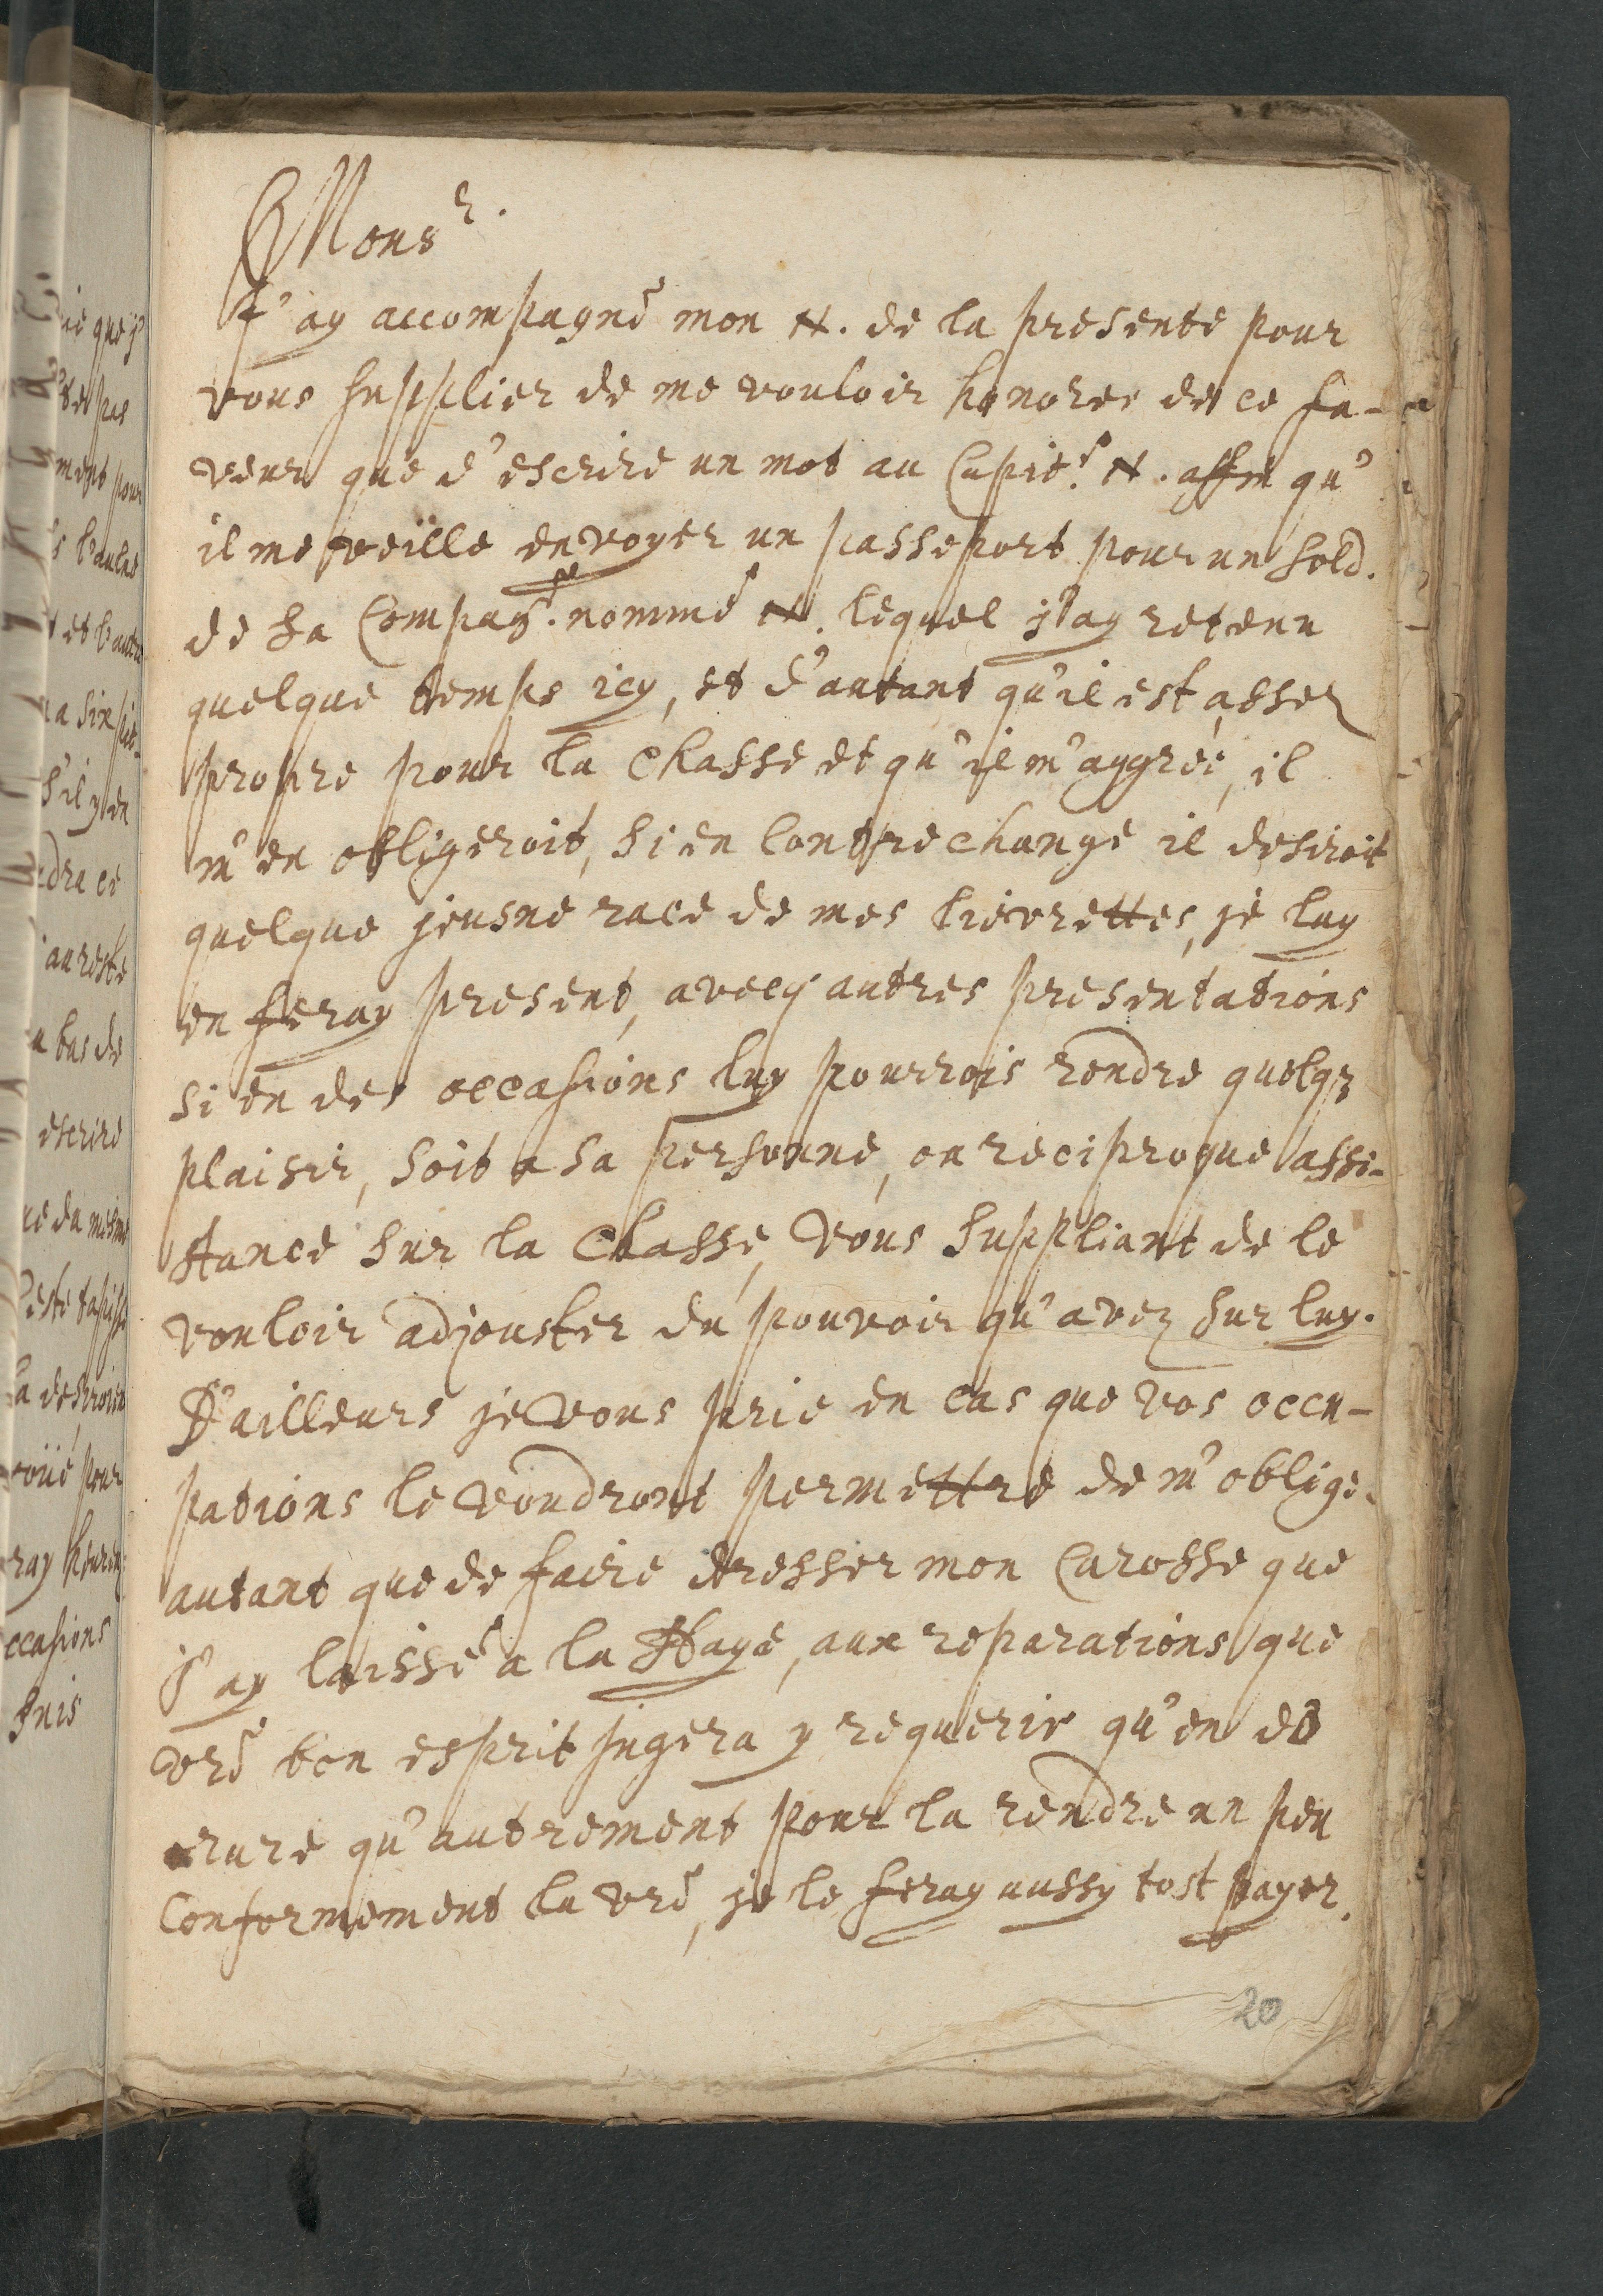 Monsr.
J'ay accompagné mon N. de la presente pour
vous supplier de me vouloir honorer de ce fa-
veur que d'escrire un mot au Capite. N. affin qu'
il me veüille envoyer un passeport pour un sold.
de sa Compage. nommé N. lequel j'ay retenu
quelque temps icy, et d'autant qu'il est assez
propre pour la chasse et qu'il m'aggrée, il
m'en obligeroit, si en Contrechange il desiroit
quelque jeusne race de mes lievrettes, je luy
en feray present, avecq autres presentations
si en des occasions luy pourrois rendre quelqz
plaisir, soit a sa personne, ou reciproque assi-
stance sur la chasse, vous suppliant de le
vouloir adjouster du pouvoir qu'avez sur luy.
D'ailleurs je vous prie en cas que vos occu-
pations le voudront permettre de m'oblige.
autant que de faire dresser mon Carosse que
j'ay laissé a la Haye, aux reparations que
vre bon esprit jugera y requerir qu'en do
rure qu'autrement pour la rendre un peu
Conformement la vre, je le feray aussy tost payer.
20
ie que j'
pas
ment pour
s l'aulne
et l'autre
a six pie-
s'il y en
dra ce
au reste
a bas de
escrire
ce da mesme
este tapisse
a desiroien
oüé pour
ray heureux
ccasions
suis